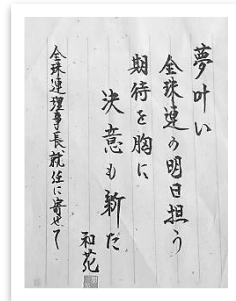 夢叶い
全珠連の明日担う
期待を胸に
決意も新た
和苑
全珠連理事長就任に寄せて